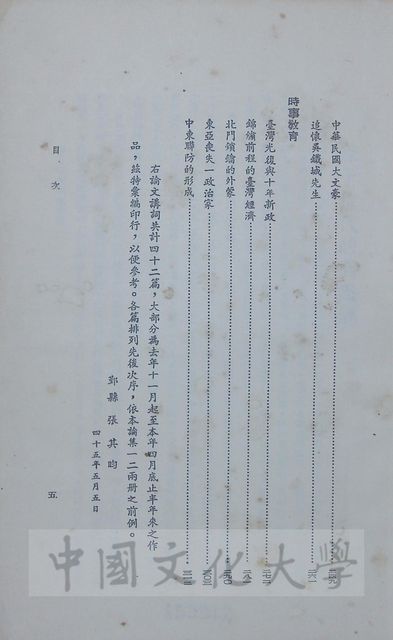 中華民國大文豪
追懷吳鐵城先生
時事教育
臺灣光復與十年新政
錦繡前程的臺灣經濟
北門鎖鑰的外蒙
東亞喪失一政治家
中東聯防的形成
右論文講詞共計四十二篇，大部分為去年十一月起至本年四月底止半年來之作
品，茲特彙編印行，以便參考。各篇排列先後次序，依本論集一二兩册之前例。
鄞縣 張其昀
四十五年五月五日
目次
五
中國文化大學